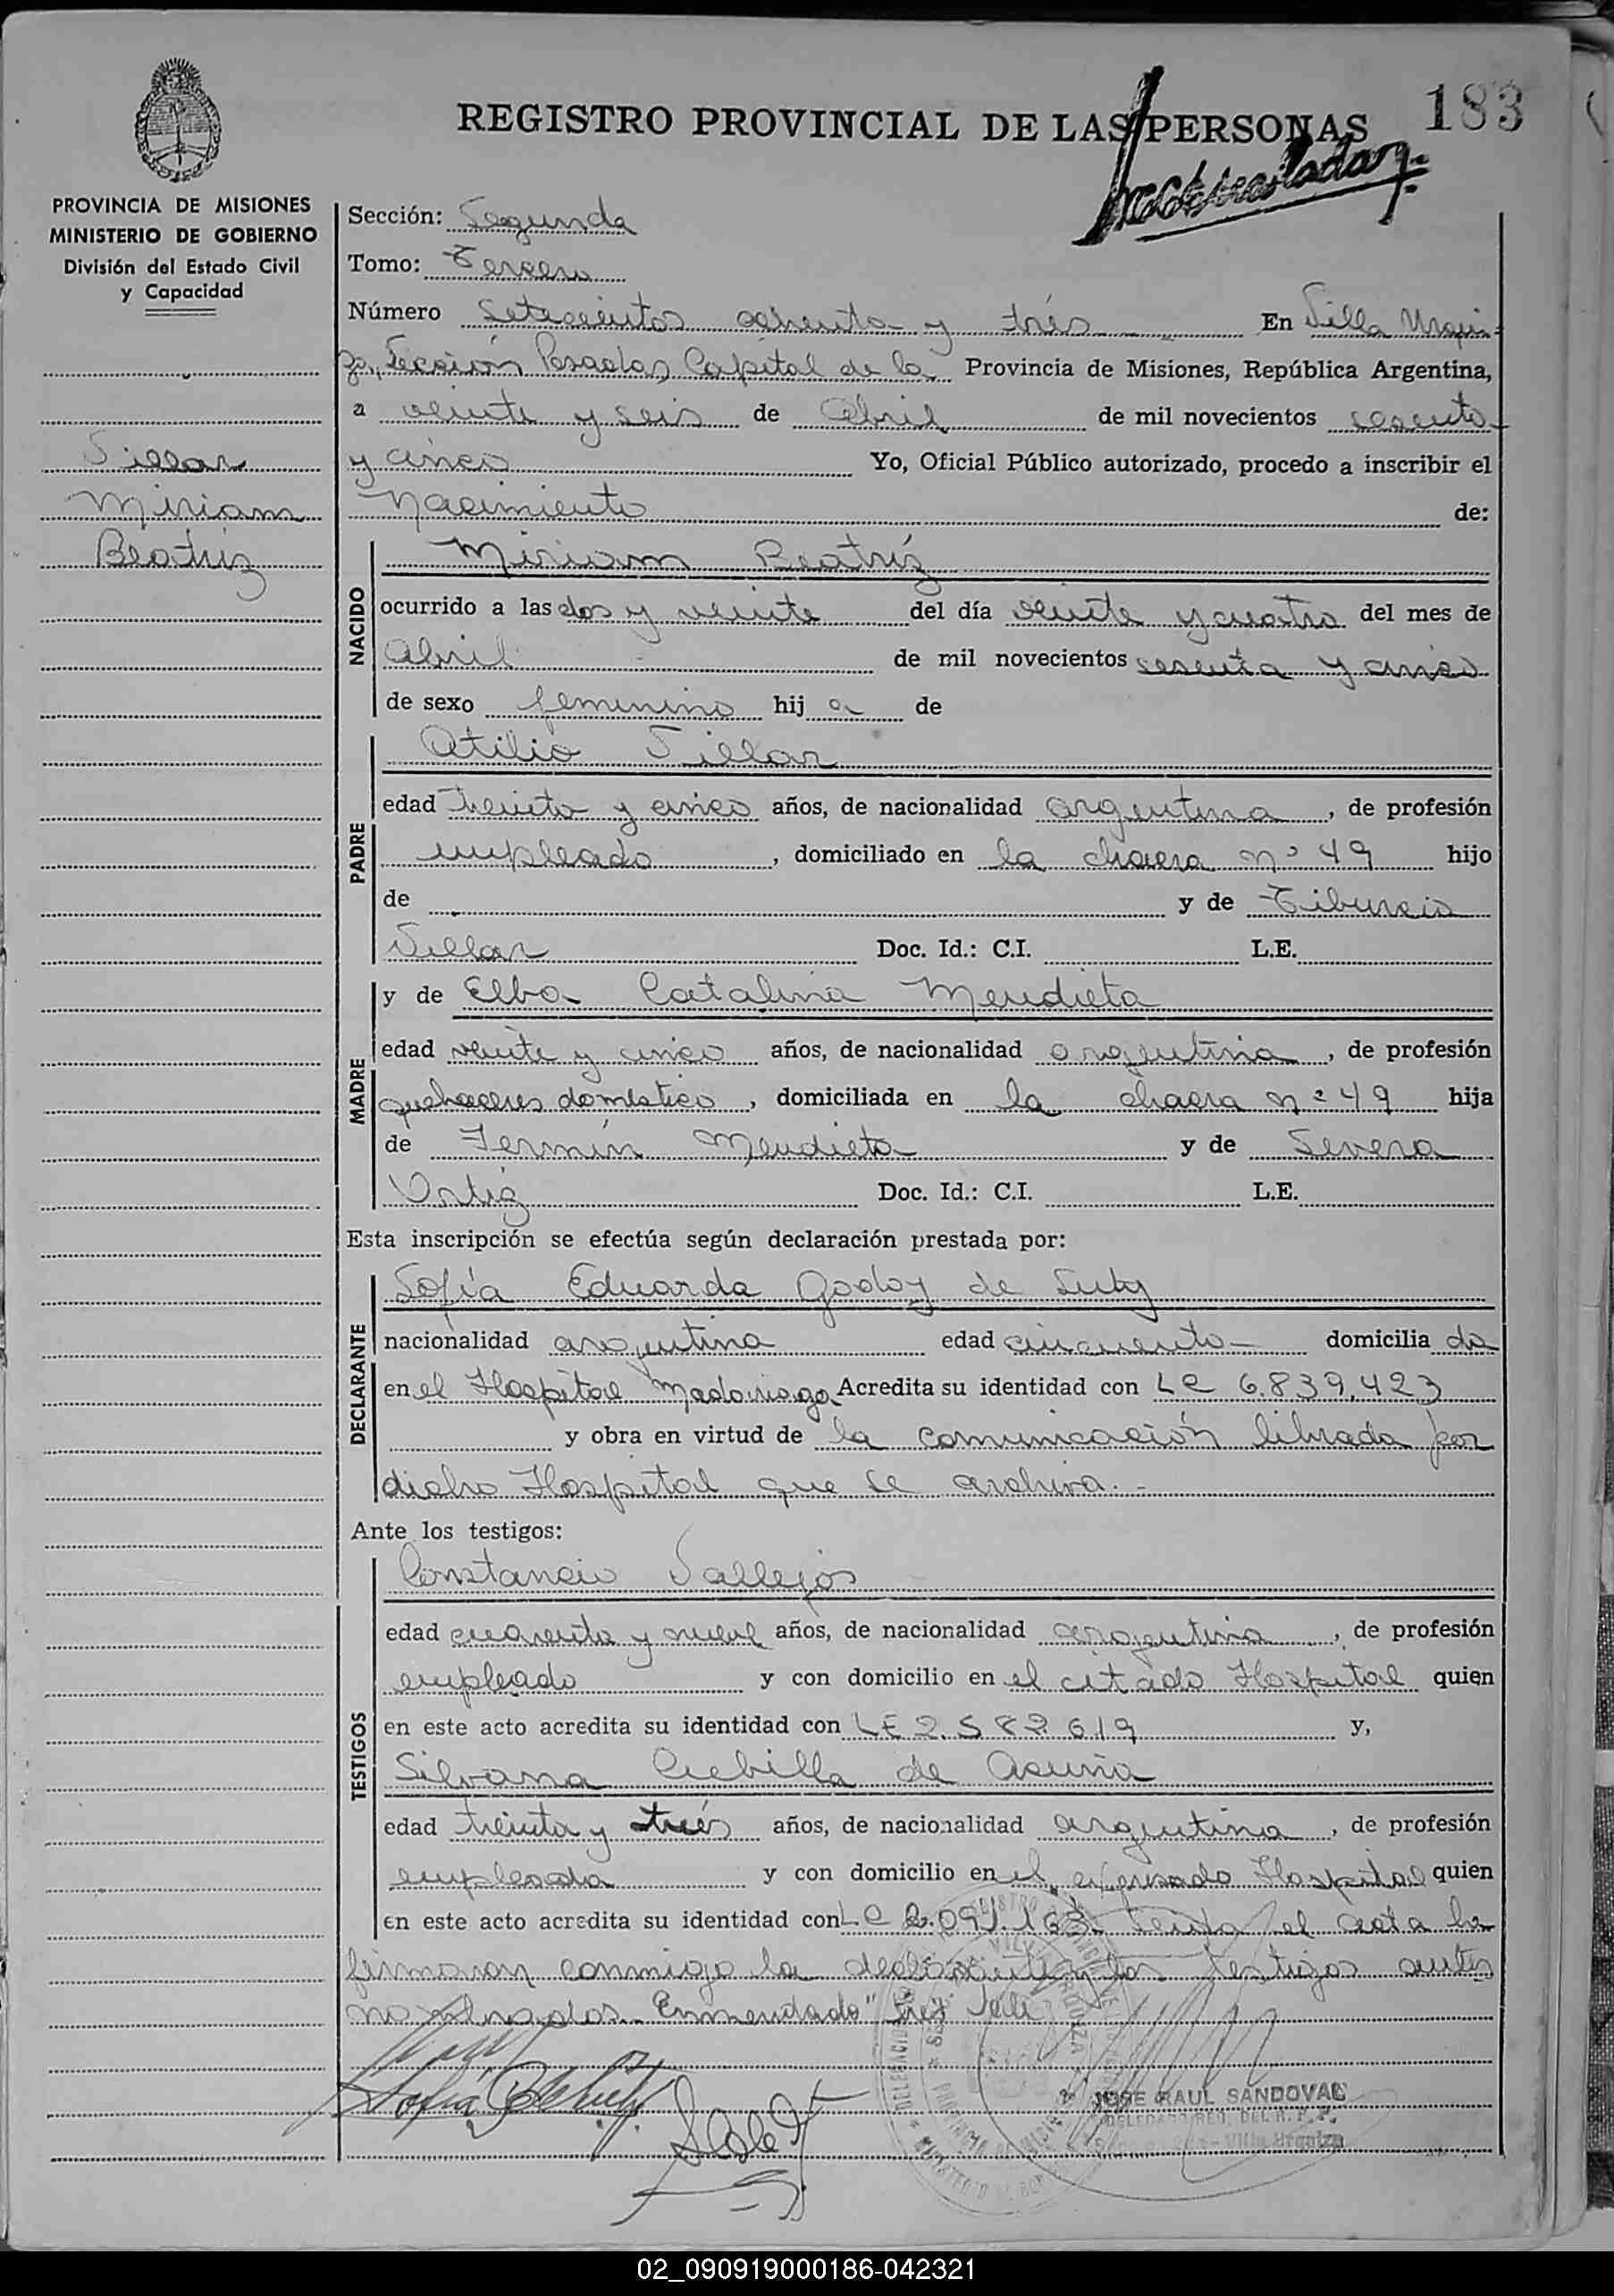 REGISTRO PROVINCIAL DE LAS PERSONAS
183
PROVINCIA DE MISIONES
MINISTERIO DE GOBIERNO
División del Estado Civil
y Capacidad
Villar
Miriam
Beatriz
Sección: Segunda
Tomo: Tercero
Número Setecientos ochenta y trés En Villa Urqui-
za, Sección Posadas, Capital de la Provincia de Misiones, República Argentina,
a veinte y seis de abril de mil novecientos sesenta
y cinco Yo, Oficial Público autorizado, procedo a inscribir el
Nacimiento de:
NACIDO
Miriam Beatríz
ocurrido a las dos y veinte del día veinte y cuatro del mes de
abril de mil novecientos sesenta y cinco
de sexo femenino hij a de
PADRE
Atilio Villar
edad treinta y cinco años, de nacionalidad argentina, de profesión
empleado, domiciliado en la chacra nº 49 hijo
de y de Tiburcia
Villar Doc. Id.: C.I. L.E.
MADRE
y de Elba Catalina Mendieta
edad veinte y cinco años, de nacionalidad argentina, de profesión
quehaceres doméstico, domiciliada en la chacra nº 49 hija
de Fermín Mendieta y de Severa
Ortiz Doc. Id.: C.I. L.E.
Esta inscripción se efectúa según declaración prestada por:
DECLARANTE
Sofía Eduarda Godoy de
nacionalidad argentina edad cincuenta domicilia da
en el Hospital Madariaga Acredita su identidad con LC 6.839.423
y obra en virtud de la comunicación librada por
dicho Hospital que se archiva.-
Ante los testigos:
TESTIGOS
Constancio Vallejos
edad cuarenta y nueve años, de nacionalidad argentina, de profesión
empleado y con domicilio en el citado Hospital quien
en este acto acredita su identidad con LE 2.582.619 y,
Silvana Cubilla de Acuña
edad treinta y trés años, de nacionalidad argentina, de profesión
empleada y con domicilio en el expresado Hospital quien
en este acto acredita su identidad con LC 2.091.163 Leida el acta la
firmaron conmigo la declarante y los testigos antes
nombrados. Enmendado "trés" Vale
JOSE RAUL SANDOVAL
DELEGADO REG. DEL R. P. P.
Villa Urquiza
02_090919000186-042321